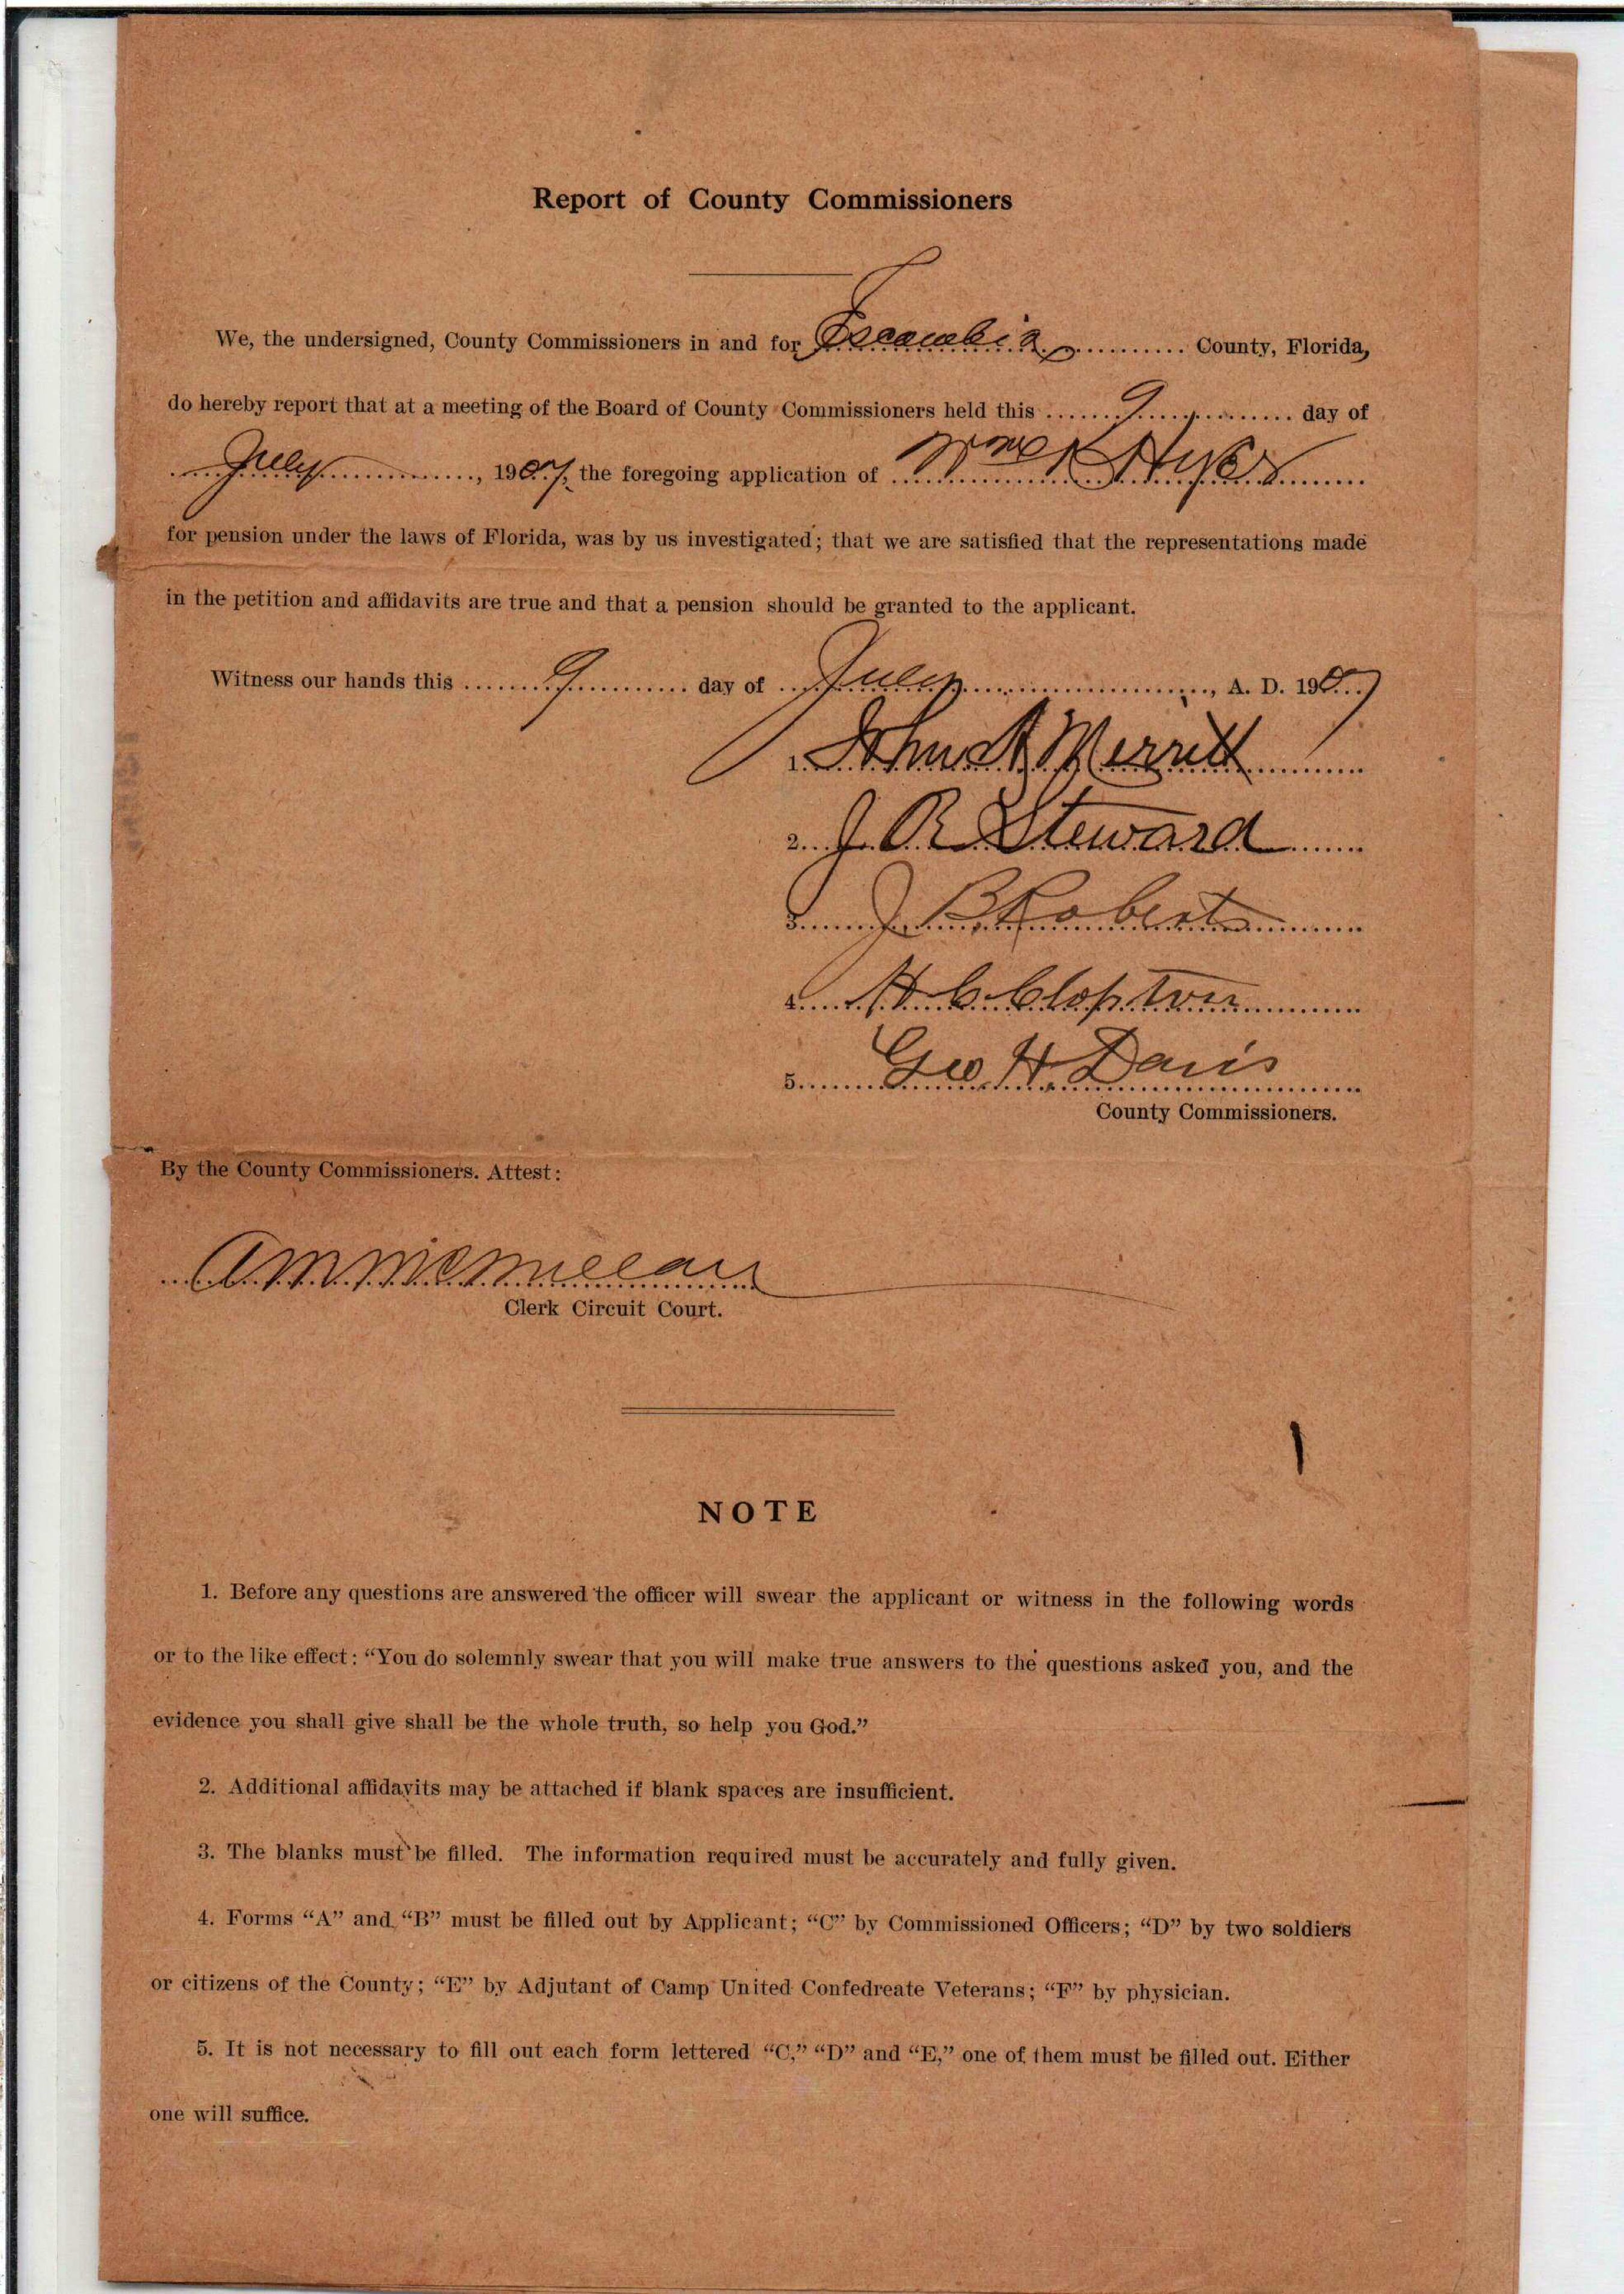 Report of County Commissioners
We, the undersigned, County Commissioners in and for Escambia County, Florida,
do hereby report that at a meeting of the Board of County Commissioners held this 9 day of
July, 1907, the foregoing application of Wm K Hyer
for pension under the laws of Florida, was by us investigated; that we are satisfied that the representations made
in the petition and affidavits are true and that a pension should be granted to the applicant.
Witness our hands this 9 day of July, A. D. 1907
1. John A Merritt
2. J. R. Steward
3. J B Roberts
4. H. C. Clopton
5. Geo H Davis
County Commissioners.
By the County Commissioners. Attest:
A M McMillan
Clerk Circuit Court.
NOTE
1. Before any questions are answered the officer will swear the applicant or witness in the following words
or to the like effect: “You do solemnly swear that you will make true answers to the questions asked you, and the
evidence you shall give shall be the whole truth, so help you God.”
2. Additional affidavits may be attached if blank spaces are insufficient.
3. The blanks must be filled. The information required must be accurately and fully given.
4. Forms “A” and “B” must be filled out by Applicant; “C” by Commissioned Officers; “D” by two soldiers
or citizens of the County; “E” by Adjutant of Camp United Confedreate Veterans; “F” by physician.
5. It is not necessary to fill out each form lettered “C,” “D” and “E,” one of them must be filled out. Either
one will suffice.